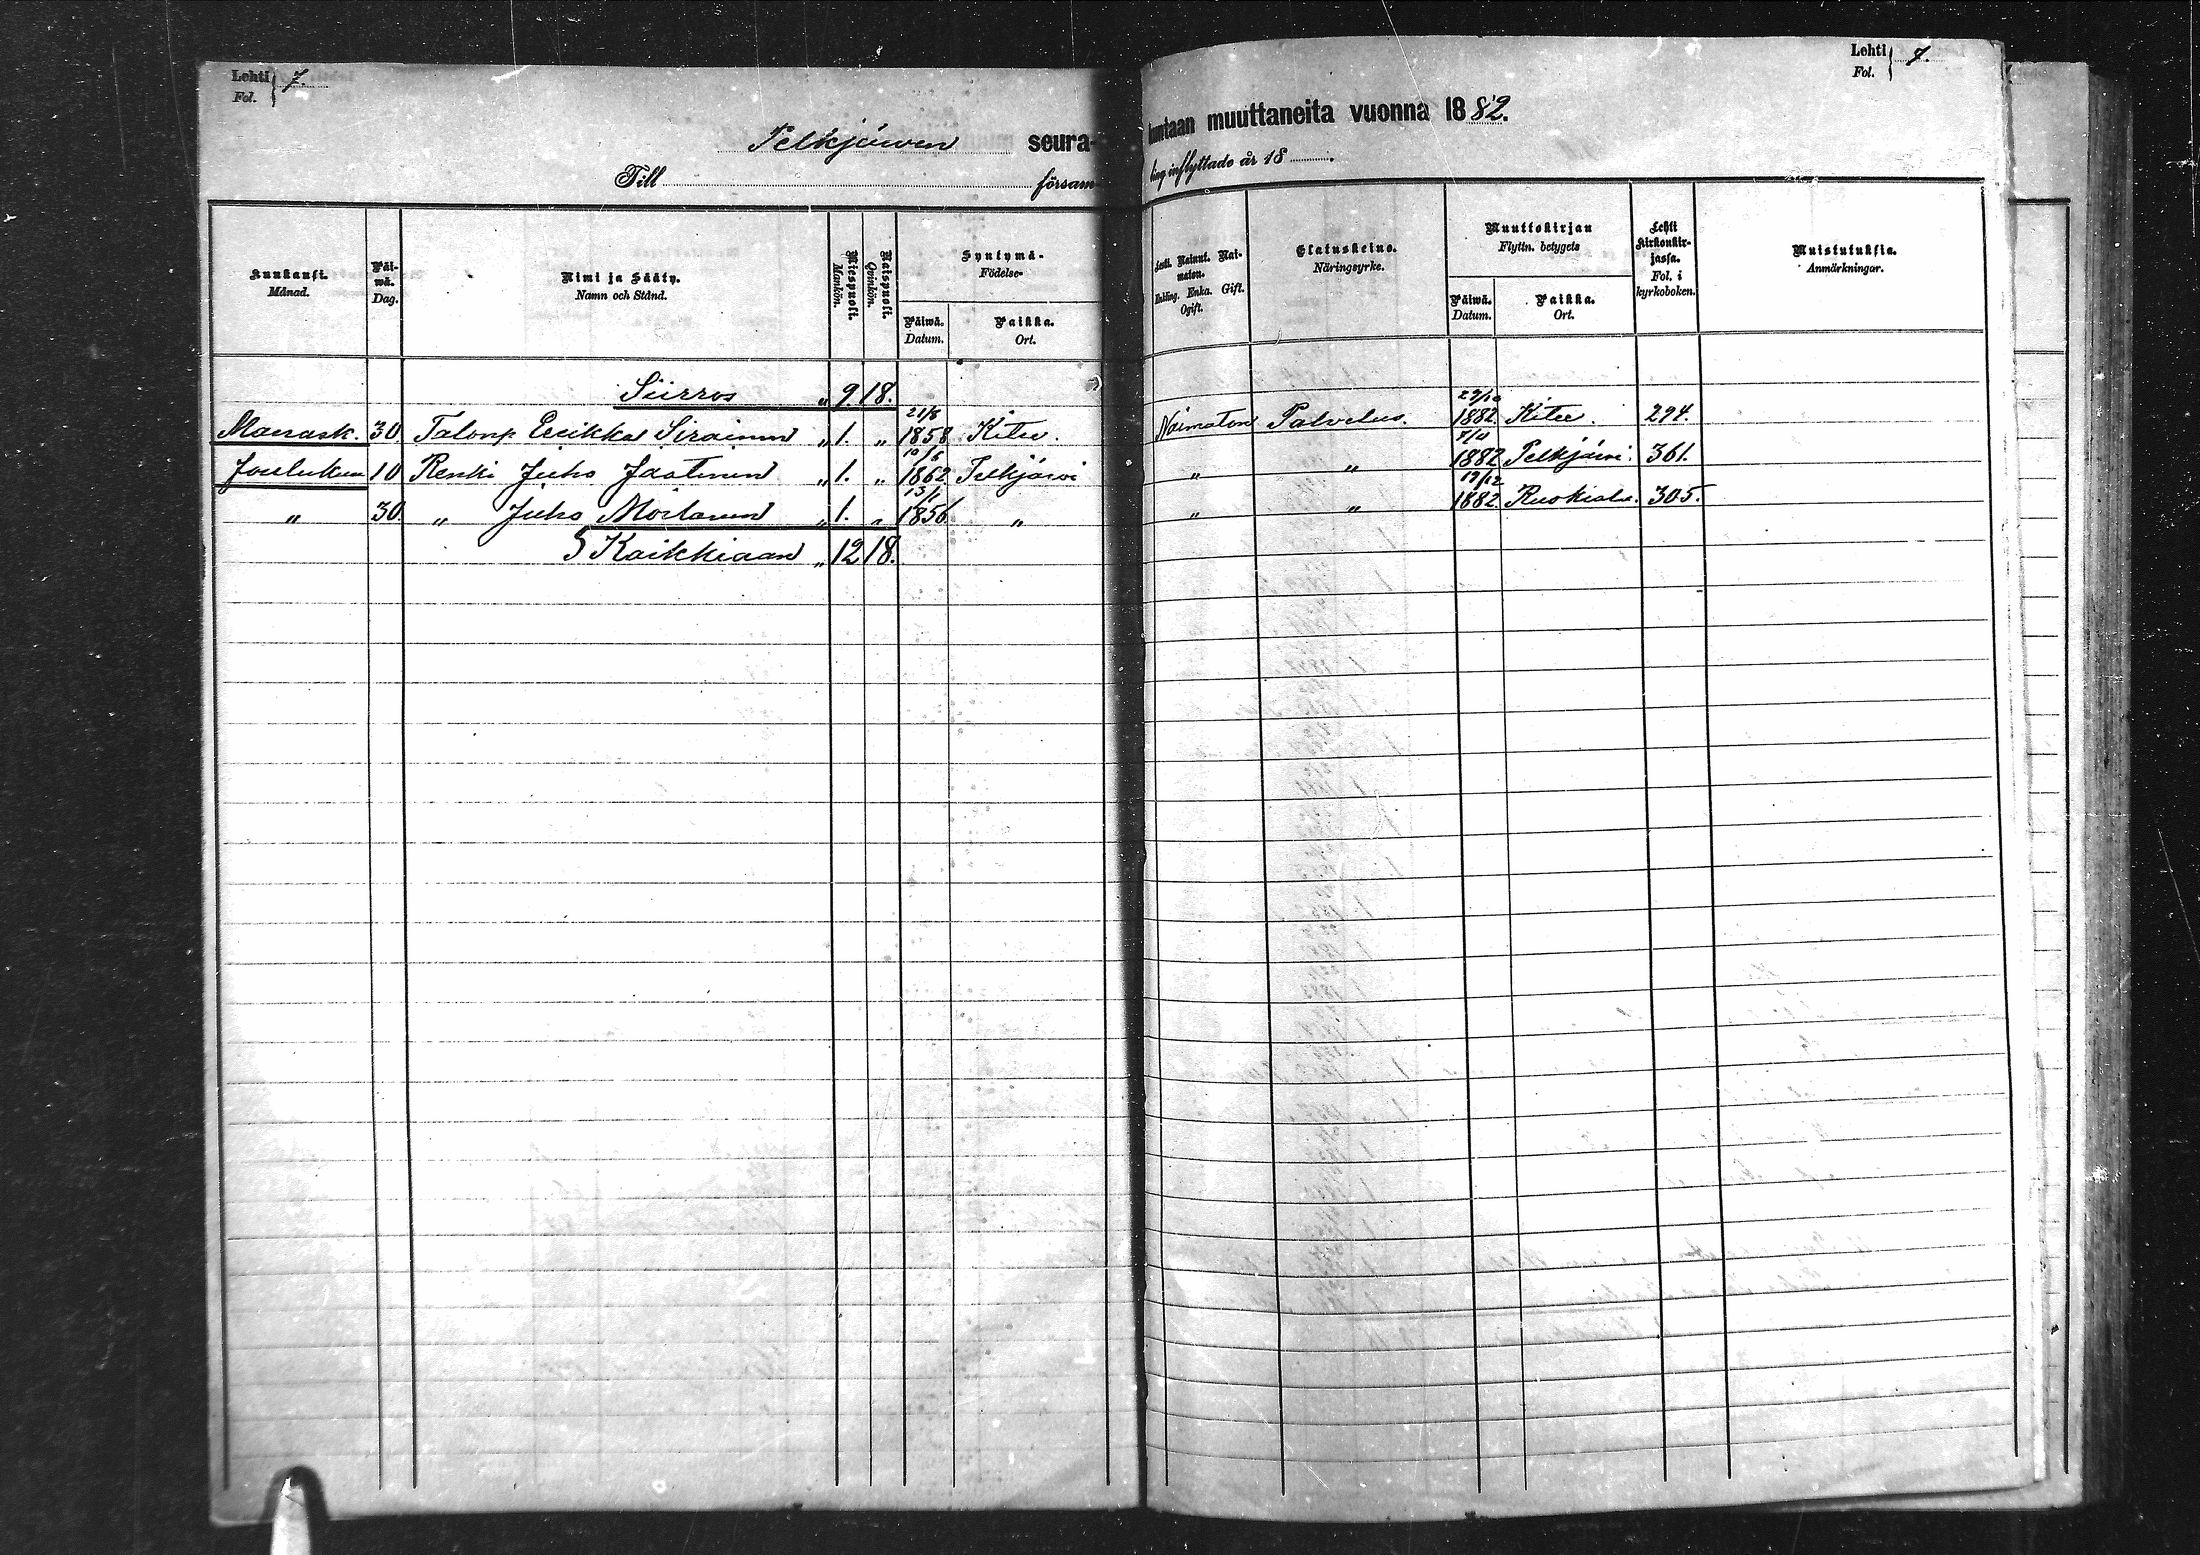 Lehti 7. Fol.
Lehti 7. Fol.
Pelkjärven seurakuntaan muuttaneita vuonna 1882.
Till försam-ling inflyttade år 18
Kuukausi. Månad.
Päiwä. Dag.
Nimi ja Sääty. Namn och Stånd.
Miespuoli. Mankön.
Naispuoli. Qvinkön.
Syntymä- Födelse-
Päiwä. Datum.
Paikka. Ort.
Leski. Nainut. Naimaton. Enkling. Enka. Gift. Ogift.
Elatuskeino. Näringsyrke.
Muuttokirjan Flyttn. betygets
Päiwä. Datum.
Paikka. Ort.
Lehti kirkonkirjassa. Fol. i kyrkoboken.
Muistutuksia. Anmärkningar.
Siirros „ 9 18.
Marrask. 30 Talonp. Eerikka Sirainen „ 1. „ 21/8 1858 Kitee. Naimaton Palvelus. 1882. Kitee. 294.
Joulukuu 10 Renki Juho Jaatinen „ 1. „ 10/6 1862 Pelkjärvi „ „ 1882 Pelkjärvi. 361.
„ 30. „ Juho „ 1. „ 13/1 1856. „ „ „ 19/12 1882. Ruskiala. 305.
S Kaikkiaan „ 12 18.